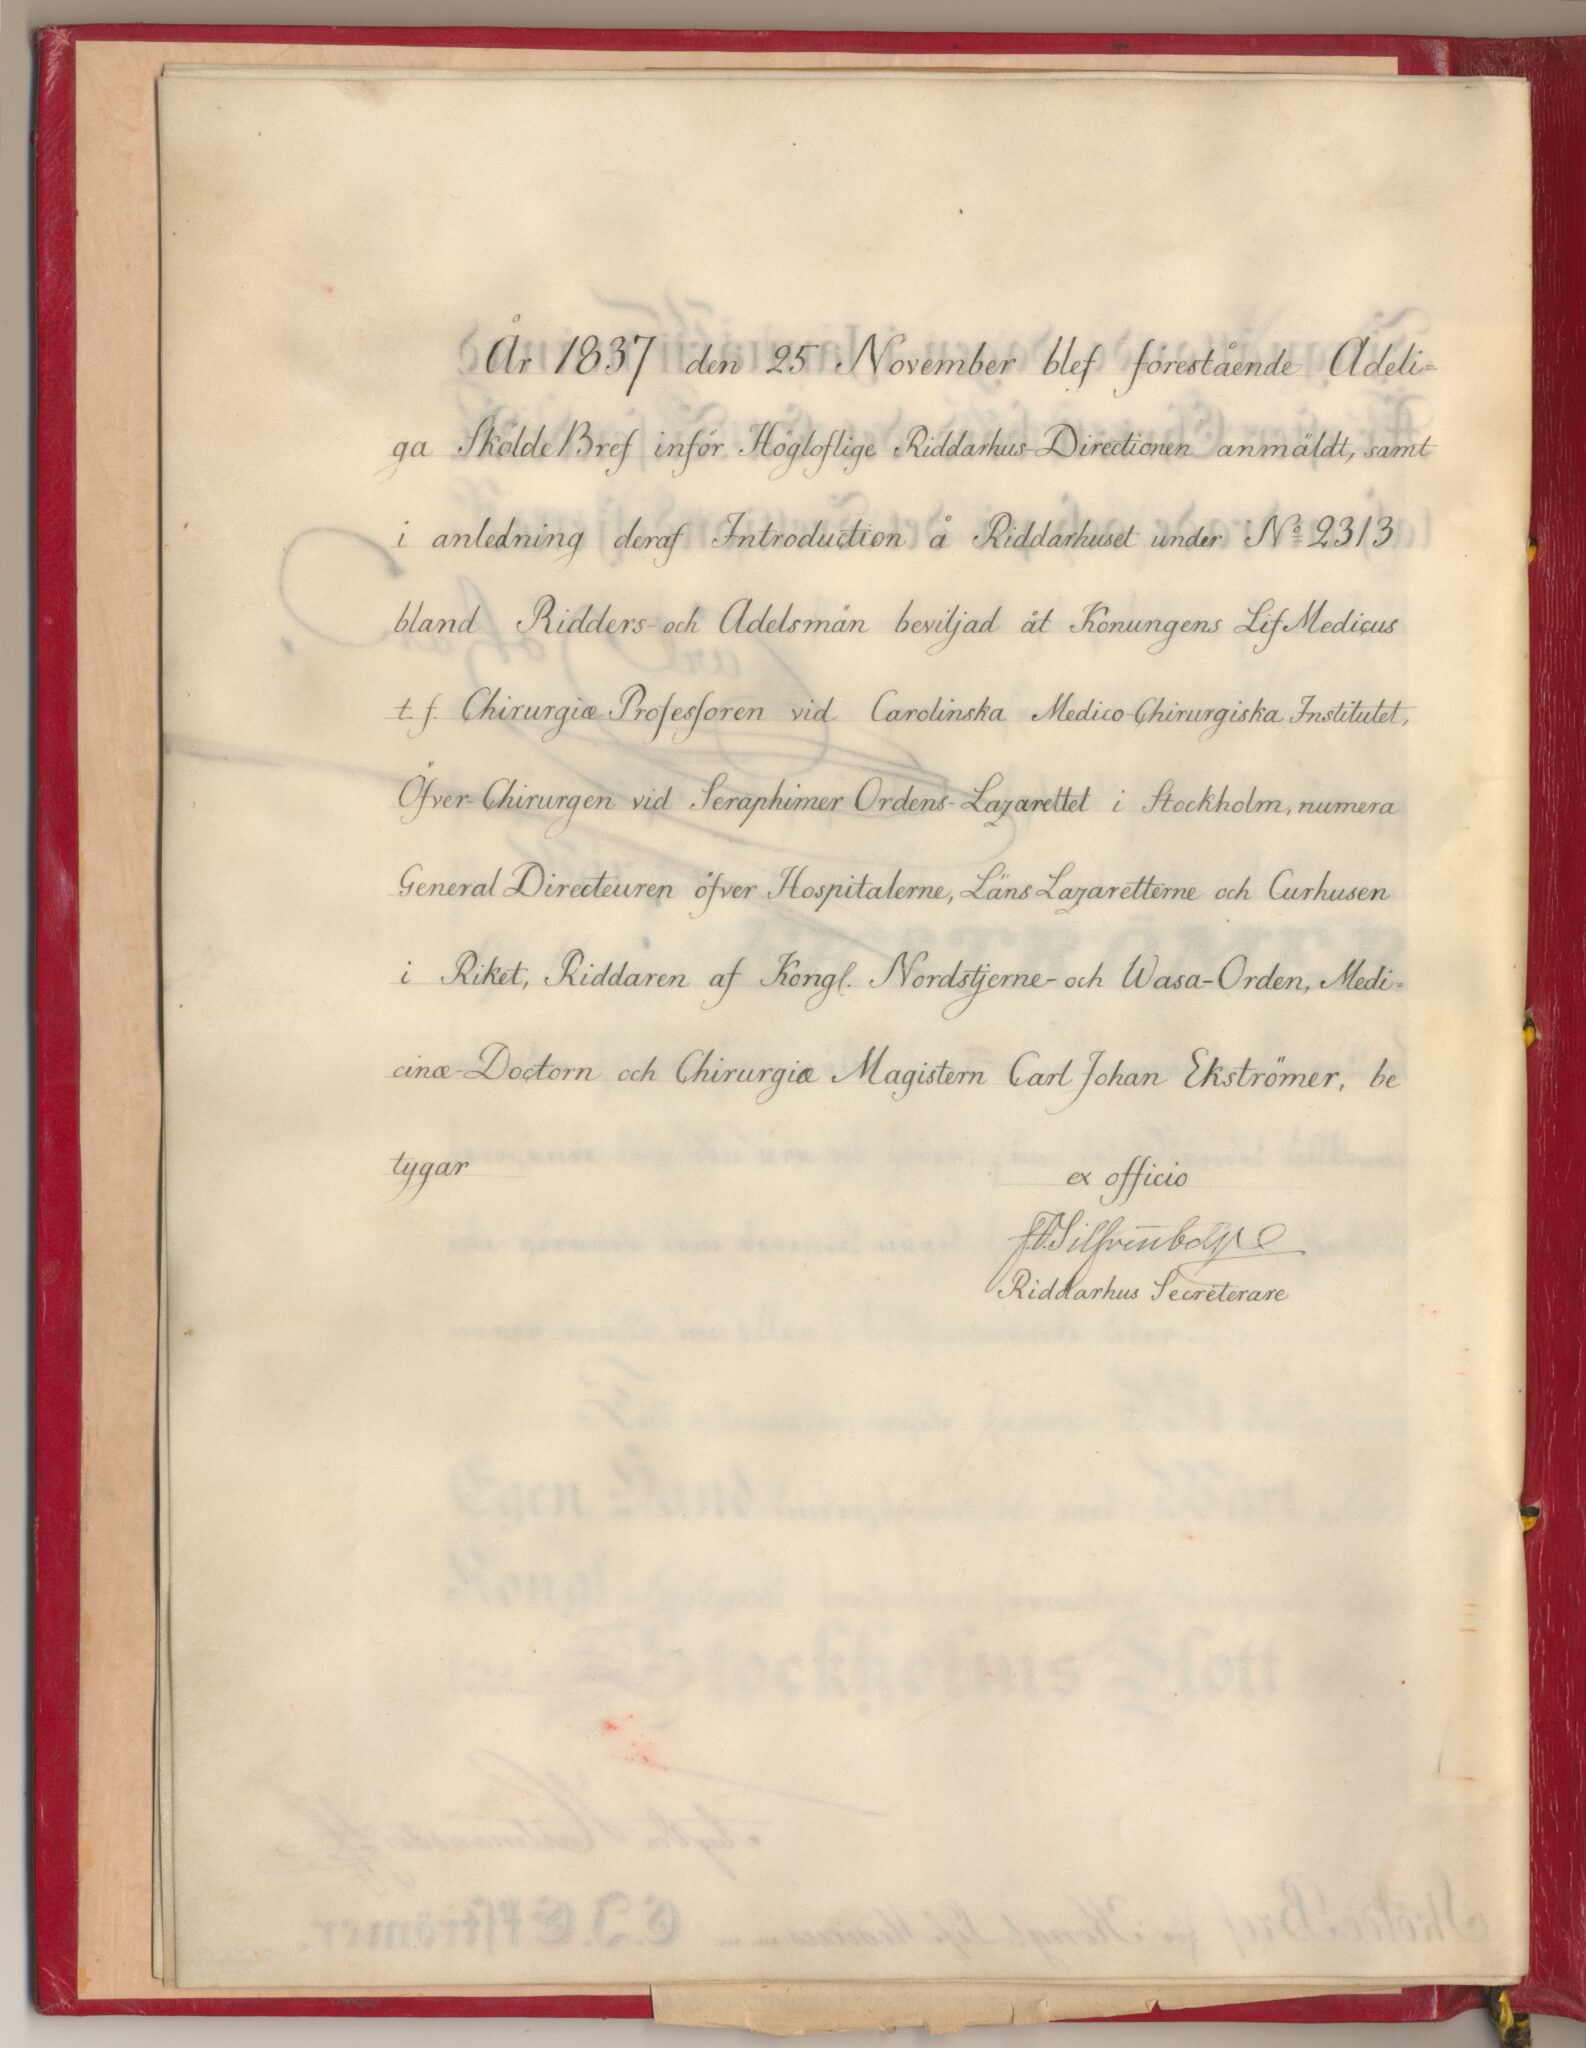 År 1837 den 25 November blef förestående Adeli=
ga SköldeBref inför Högloflige Riddarhus-Directionen anmäldt, samt
i anledning deraf Introduction å Riddarhuset under No 2313
bland Ridders- och Adelsmän beviljad åt Konungens Lif Medicus
t. f. Chirurgiæ Professoren vid Carolinska Medico-Chirurgiska Institutet,
Öfver-Chirurgen vid Seraphimer Ordens-Lazarettet i Stockholm, numera
General Directeuren öfver Hospitalerne, Läns Lazaretterne och Curhusen
i Riket, Riddaren af Kongl. Nordstjerne- och Wasa-Orden, Medi=
cinæ-Doctorn och Chirurgiæ Magistern Carl Johan Ekströmer, be
tygar
ex officio
Riddarhus Secreterare
Stockholms Slott
C. J. Ekströmer.